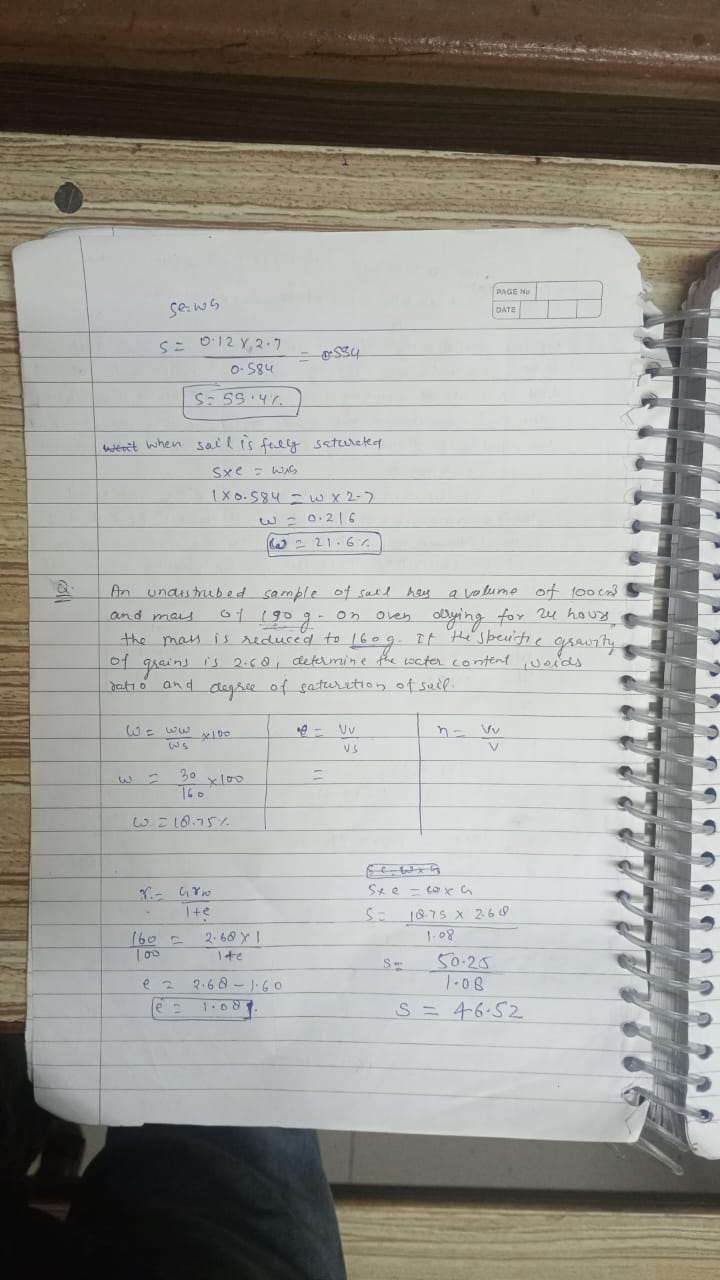 PAGE No
DATE
Se=wG
S = 0.12 x 2.7 / 0.584 = 0.554
S = 55.4%
when soil is fully saturated
Sxe = wxG
1 x 0.584 = w x 2.7
w = 0.216
w = 21.6%
Q. An undustrubed sample of soil hey a volume of 100 cm3
and mass of 190 g. on oven drying for 24 hours,
the mass is reduced to 160g. If the specific gravity
of grains is 2.68, determine the water content, voids
ratio and degree of saturation of soil.
w = ww/ws x100
w = 30/160 x 100
w = 18.75%
e = Vv/Vs
=
n = Vv/V
= Grw/1+e
160/100 = 2.68 x 1/1+e
e = 2.68 - 1.60
e = 1.08
Se=wxG
Sxe = wxG
S = 18.75 x 2.68/1.08
S = 50.25/1.08
S = 46.52